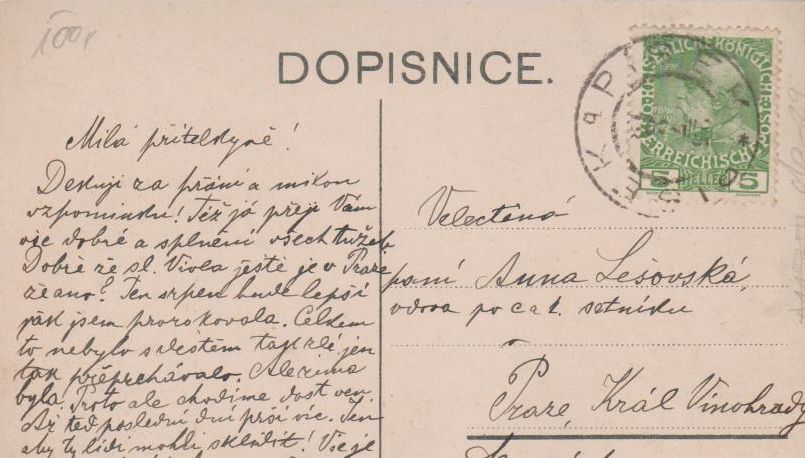 100,-
DOPISNICE.
Milá přítelkyně!
Děkuji za přání a milou
vzpomínku! Též já přeji Vám
vše dobré a splnění všech tužeb.
Dobře že sl. Viola ještě je v Praze
že ano? Ten srpen bude lepší
jak jsem prorokovala. Celkem
to nebylo s deštěm tak zlé, jen
tak přeprchávalo. Ale zima
byla. Proto ale chodíme dost ven.
Až teď poslední dni prší víc. Ten
aby ty lidi mohli sklidit! Vše je
KAISERLICH KÖNIGLICHE
ÖSTERREICHISCHE
5 HELLER 5
Velectěná
paní Anna Lešovská,
vdova po c. a k. setníku
Praze, Král Vinohrady